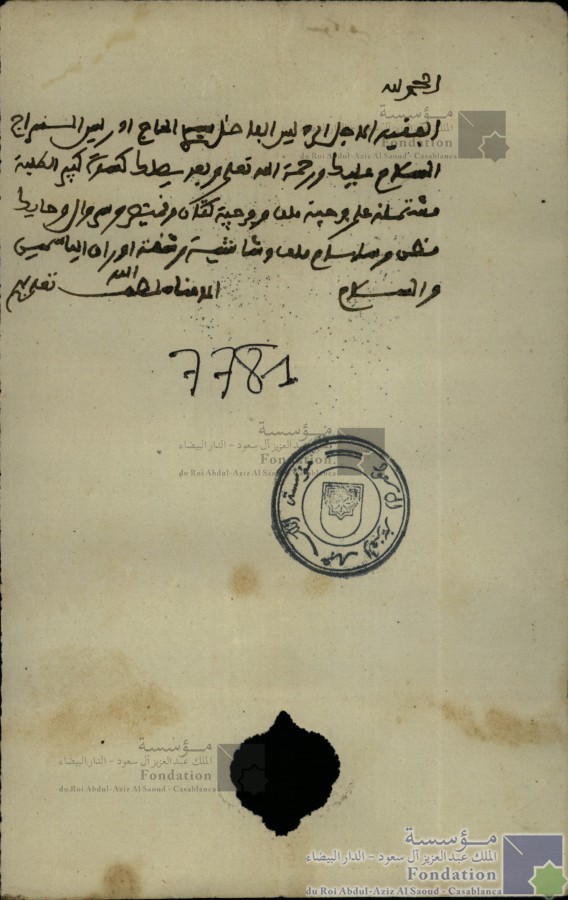 الحمد لله
الفقيه الاجل الرئيس الفاضل سيدي الحاج ادريس السراج
السلام عليك ورحمة الله تعلى وبعد يصلك كسوة كبير الطلبة
مشتملة على وجهة ملف ووجهة كتان وقميص وسروال وحايك
وسلهام ملف وشاشية
والسلام
الله
تعلى
7781
مؤسسة
الملك عبدالعزيز آل سعود - الدار البيضاء
Fondation
du Roi Abdul-Aziz Al Saoud - Casablanca
مؤسسة
الملك عبدالعزيز آل سعود - الدار البيضاء
Fondation
du Roi Abdul-Aziz Al Saoud - Casablanca
مؤسسة
الملك عبدالعزيز آل سعود - الدار البيضاء
Fondation
du Roi Abdul-Aziz Al Saoud - Casablanca
مؤسسة
الملك عبدالعزيز آل سعود - الدار البيضاء
Fondation
du Roi Abdul-Aziz Al Saoud - Casablanca